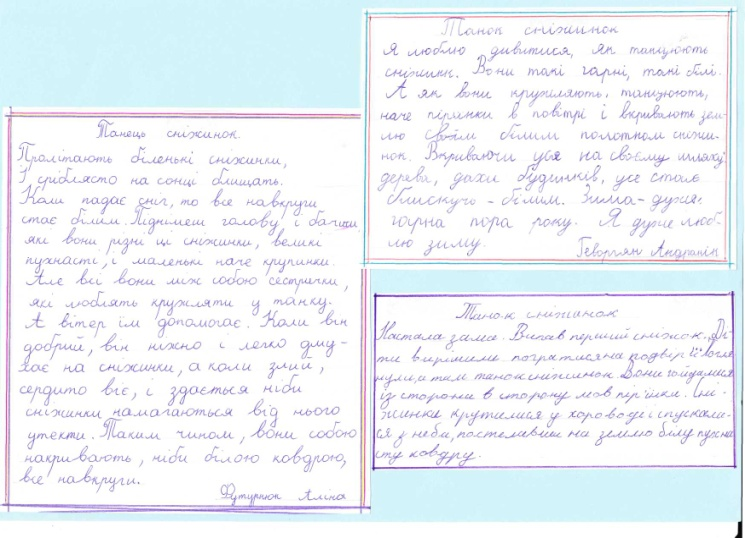 Танець сніжинок.
Пролітають біленькі сніжинки,
І сріблясто на сонці блищать.
Коли падає сніг, то все навкруги
стає білим. Піднімеш голову і бачиш
які вони різні ці сніжинки, великі
пухнасті, і маленькі наче крупинки.
Але всі вони між собою сестрички,
які люблять кружляти у танку.
А вітер їм допомогає. Коли він
добрий, він ніжно і легко дму-
хає на сніжинки, а коли злий,
сердито віє, і здається ніби
сніжинки намагаються від нього
утекти. Таким чином, вони собою
накривають, ніби білою ковдрою,
все навкруги.
Аліна
Танок сніжинок
Я люблю дивитися, як танцюють
сніжинки. Вони такі гарні, такі білі.
А як вони кружляють, танцюють,
наче піринки в повітрі і вкривають зем-
лю своїм білим полотном сніжи-
нок. Вкриваючи усе на своєму шляху:
дерева, дахи будинків, усе стає
блискучо - білим. Зима - дуже
гарна пора року. Я дуже люб-
лю зиму.
Геворгян Андранік
Танок сніжинок
Настала зима. Випав перший сніжок. Ді-
ти вирішили погратися на подвір'ї і
танок сніжинок. Вони гойдалися
із сторони в сторону мов пір'їнки. Сні-
жинки крутилися у хороводі і спускали-
ся з неба, постеливши на землю білу пухна-
сту ковдру.